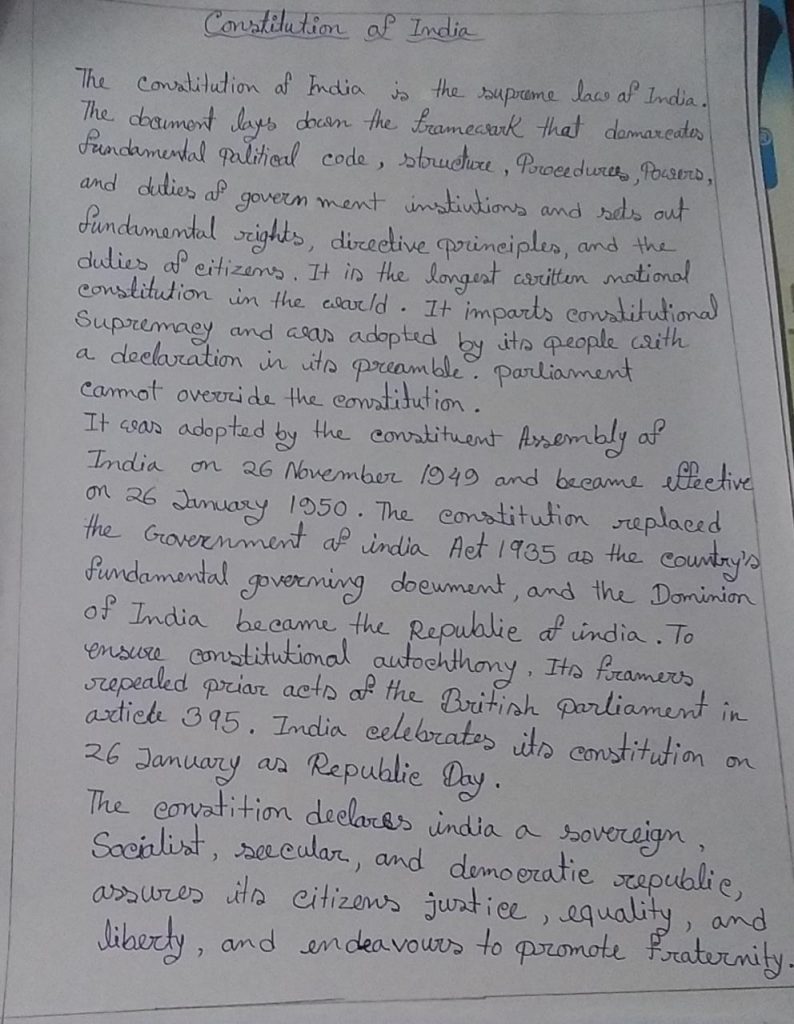 Constitution of India
The constitution of India is the supreme law of India.
The document lays down the framework that demarcates
fundamental political code, structure, Procedures, Powers,
and duties of govern ment instiutions and sets out
fundamental rights, directive principles, and the
duties of citizens. It is the longest written national
constitution in the world. It imparts constitutional
Supremacy and was adopted by its people with
a declaration in its preamble. parliament
cannot override the constitution.
It was adopted by the constituent Assembly of
India on 26 November 1949 and became effective
on 26 January 1950. The constitution replaced
the Government of india Act 1935 as the country's
fundamental governing document, and the Dominion
of India became the Republic of india. To
ensure constitutional autochthony, Its framers
repealed prior acts of the British parliament in
article 395. India celebrates its constitution on
26 January as Republic Day.
The constition declares india a sovereign,
Socialist, seecular, and democratic republic,
assures its citizens justice, equality, and
liberty, and endeavours to promote fraternity.